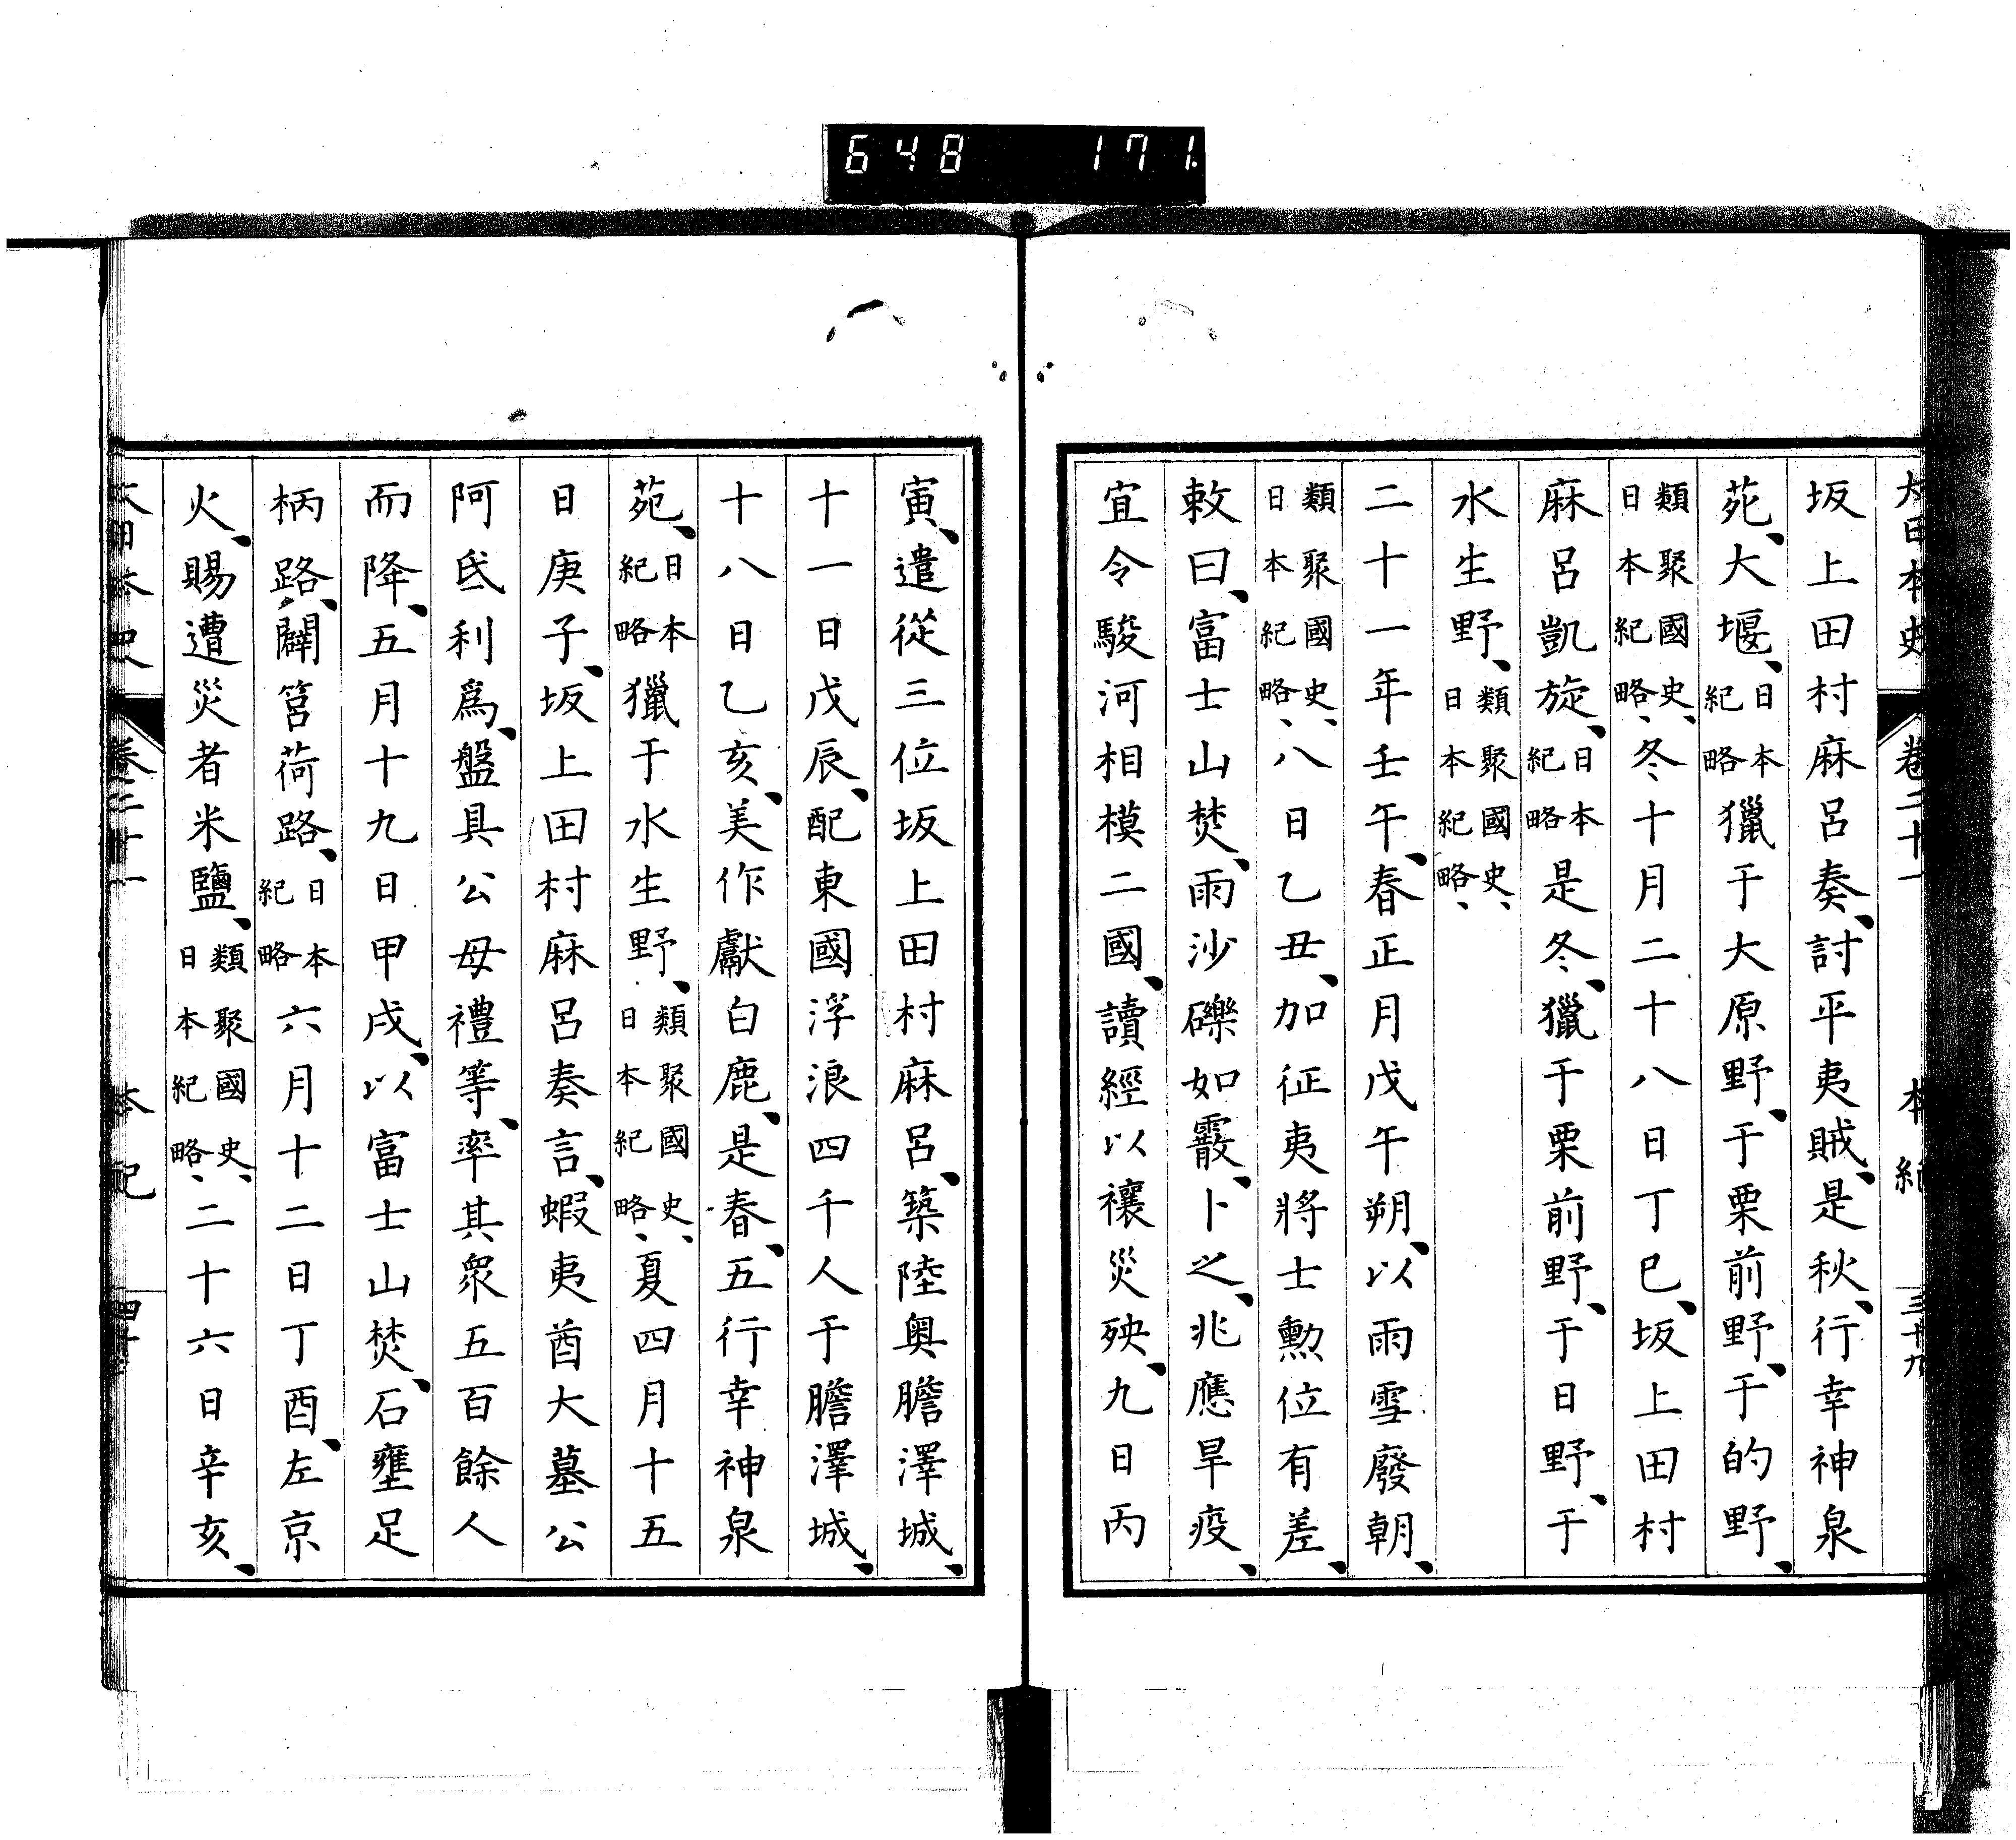 648 171
大日本史 卷二十一 本紀 三十九
坂上田村麻呂奏、討平夷賊、是秋、行幸神泉
苑、大堰、日本紀略獵于大原野、于栗前野、于的野、
類聚國史、日本紀略、冬十月二十八日丁巳、坂上田村
麻呂凱旋、日本紀略是冬、獵于栗前野、于日野、于
水生野、類聚國史、日本紀略、
二十一年壬午、春正月戊午朔、以雨雪廢朝、
類聚國史、日本紀略、八日乙丑、加征夷將士勲位有差、
敕曰、富士山焚、雨沙礫如霰、卜之、兆應旱疫、
宜令駿河相模二國、讀經以禳災殃、九日丙
寅、遣從三位坂上田村麻呂、築陸奥膽澤城、
十一日戊辰、配東國浮浪四千人于膽澤城、
十八日乙亥、美作獻白鹿、是春、五行幸神泉
苑、日本紀略獵于水生野、類聚國史、日本紀略、夏四月十五
日庚子、坂上田村麻呂奏言、蝦夷酋大墓公
阿氐利爲、盤具公母禮等、率其衆五百餘人
而降、五月十九日甲戌、以富士山焚、石壅足
柄路、闢筥荷路、日本紀略六月十二日丁酉、左京
火、賜遭災者米鹽、類聚國史、日本紀略、二十六日辛亥、
大日本史 卷二十一 本紀 四十